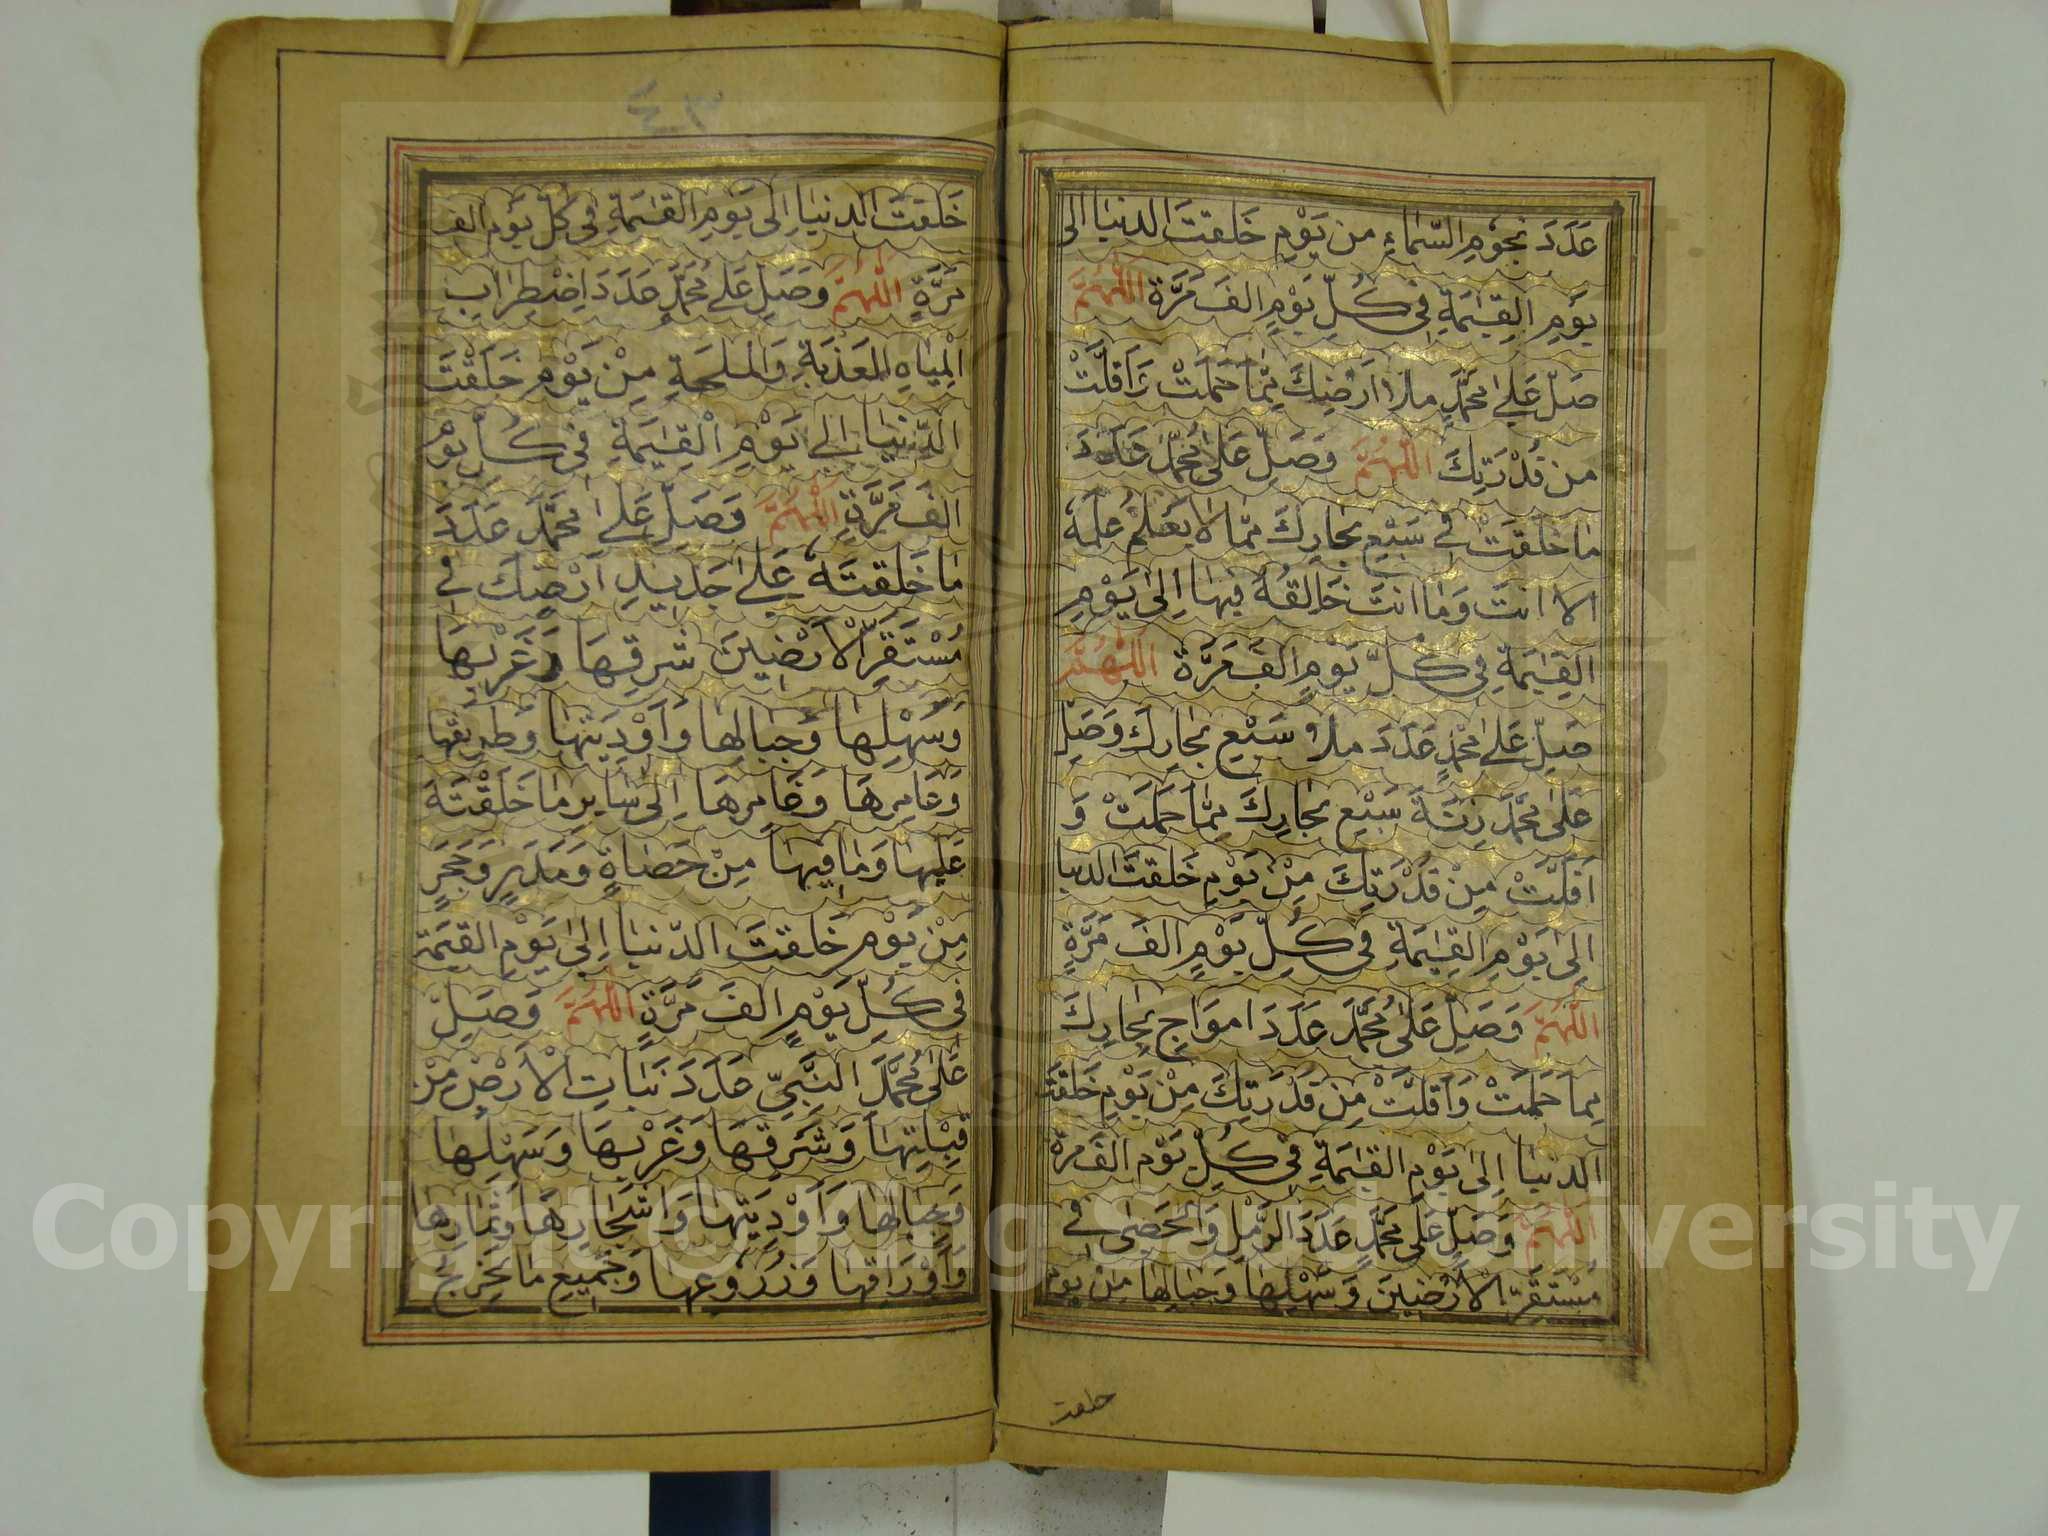 عَدَدَ نُجُوْمِ السَّمَاءِ من يَوْمِ خَلَقتَ الدنيا الى
يَومِ القِيٰمَةِ فى كُلِّ يَوْمٍ الفَ مَرَّة اَللّٰهُمَّ
صَلِّ عَلىٰ محَمَّدٍ ملأ اَرْضِكَ مِمَّا حَمَلَتْ وَاَقَلَّتْ
من قُدْرَتِكَ اللّٰهُمَّ وَصَلِّ عَلىٰ مُحَمَّدٍ عَدَدَ
مَا خَلَقتَ فى سَبْعِ بحَارِكَ ممّا لا يَعْلمُ عِلمَهُ
الا انتَ وَمَا انتَ خَالِقُهُ فيهَا اِلىٰ يَوْمِ
القِيٰمَةِ فى كُلِّ يَوْمٍ الفَ مَرَّة اللّٰهُمَّ
صَلِّ عَلىٰ محمَّدٍ عَدَدَ ملأ سَبْعِ بحَارِكَ وَصَلِّ
عَلىٰ محَمَّدٍ زِنَةَ سَبْعِ بحَارِكَ ممَّا حَمَلَتْ وَ
اَقَلَّتْ مِنْ قُدْرَتِكَ مِنْ يَوْمِ خَلَقتَ الدنيا
اِلىٰ يَوْمِ القِيٰمَةِ فى كُلِّ يَوْمٍ الفَ مَرَّةٍ
اللّٰهُمَّ وَصَلِّ عَلىٰ مُحَمَّدٍ عَدَدَ امواَجِ بحَارِكَ
مما حَمَلَتْ وَاَقَلَّتْ مِنْ قُدْرَتِكَ مِنْ يَوْمِ خَلَقتَ
الدنيا اِلىٰ يَوْمِ القيٰمَةِ فى كُلِّ يَوْمٍ الفَ مَرَّة
اللّٰهُمَّ وَصَلِّ عَلىٰ محَمَّدٍ عَدَدَ الرَّمْلِ وَالحَصٰى فى
مُسْتَقَرِّ الْاَرْضِينَ وَسَهْلِهَا وَجِبَالِهَا مِنْ يَومِ
خلقت
خَلَقتَ الدنيَا اِلى يَومِ القيٰمَةِ فى كُلِّ يَومٍ الف
مَرَّةٍ اللّٰهُمَّ وَصَلِّ عَلىٰ مُحَمَّدٍ عَدَدَ اِضْطِرَابِ
الْمِيَاهِ العَذْبَةِ وَالملحَةِ مِنْ يَوْمِ خَلَقْتَ
الدُّنْيَا اِلى يَوْمِ الْقِيٰمَةِ فى كُلِّ يَوْمٍ
الفَ مَرَّةٍ اَللّٰهُمَّ وَصَلِّ عَلىٰ محَمَّدٍ عَدَدَ
مَا خَلَقتَهُ عَلىٰ جَدِيدِ اَرْضِكَ فى
مُسْتَقَرِّ الْاَرَضِينَ شَرقِهَا وَغَرْبِهَا
وَسَهْلِهَا وَجِبَالِهَا وَاَوْدِيَتِهَا وَطريقِهَا
وَعَامِرِهَا وَغَامِرِهَا اِلى سَايِرِ مَا خَلَقْتَهُ
عَلَيهَا وَمَا فيهَا مِنْ حَصَاةٍ وَمَدَرٍ وَحَجَرٍ
مِنْ يَوْمِ خَلَقتَ الدّنيَا اِلىٰ يَوْمِ القيٰمَة
فى كُلِّ يَوْمٍ الفَ مَرَّةٍ اللّٰهُمَّ وَصَلِّ
عَلىٰ مُحَمَّدٍ النَّبِيِّ عَدَدَ نَبَاتِ الْاَرْضِ مِنْ
قِبْلَتِهَا وَشَرقِهَا وَغَرْبِهَا وَسَهْلِهَا
وَجِبَالِهَا وَاَوْدِيَتِهَا وَاشْجَارِهَا وَثِمَارِهَا
وَاَوْرَاقِهَا وَزُرُوعِهَا وَجَمِيعِ مَا يَخْرُجُ
Copyright © King Saud University